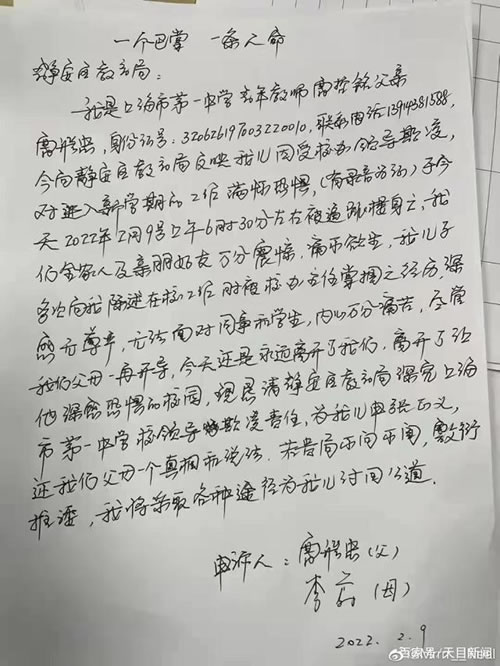 一个巴掌 一条人命
静安区教育局：
我是上海市第一中学青年教师父亲
身份证号：320626197003220010，联系电话13914381588，
今向静安区教育局反映我儿因受校办领导欺凌，
对进入新学期的工作满怀恐惧，（有录音为证）于今
天2022年2月9号上午6时30分左右被逼跳楼身亡，我
们全家人及亲朋好友万分震惊，痛不欲生，我儿子
多次向我陈述在校工作时被校办主任掌掴之经历，深
感无尊严，无法面对同事和学生，内心万分痛苦，尽管
我们父母一再开导，今天还是永远离开了我们，离开了让
他深感恐惧的校园，现恳请静安区教育局深究上海
市第一中学校领导欺凌责任，为我儿申张正义，
还我们父母一个真相和说法。若贵局不闻不问，敷衍
推诿，我将采取各种途径为我儿讨回公道。
申诉人：（父）
李（母）
2022.2.9
百家号/天目新闻